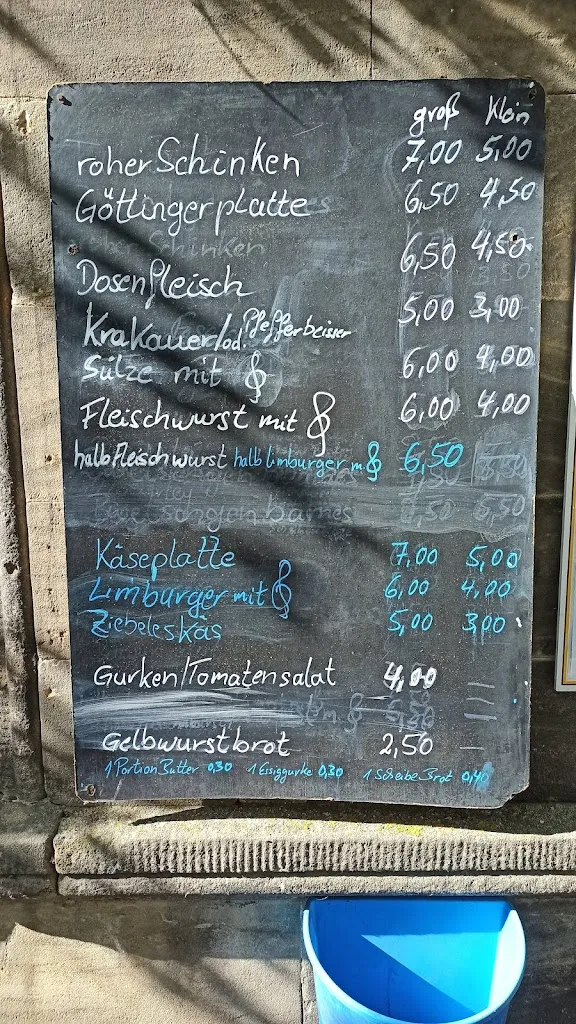 groß klein
roher Schinken 7,00 5,00
Göttingerplatte 6,50 4,50
Dosenfleisch 6,50 4,50
Krakauer/od. Pfefferbeisser 5,00 3,00
Sülze mit 𝄞 6,00 4,00
Fleischwurst mit 𝄞 6,00 4,00
halb Fleischwurst halb limburger m. 𝄞 6,50
Käseplatte 7,00 5,00
Limburger mit 𝄞 6,00 4,00
Ziebeleskäs 5,00 3,00
Gurken/Tomatensalat 4,00 —
Gelbwurstbrot 2,50 —
1 Portion Butter 0,30 1 Essiggurke 0,30 1 Scheibe Brot 0,40